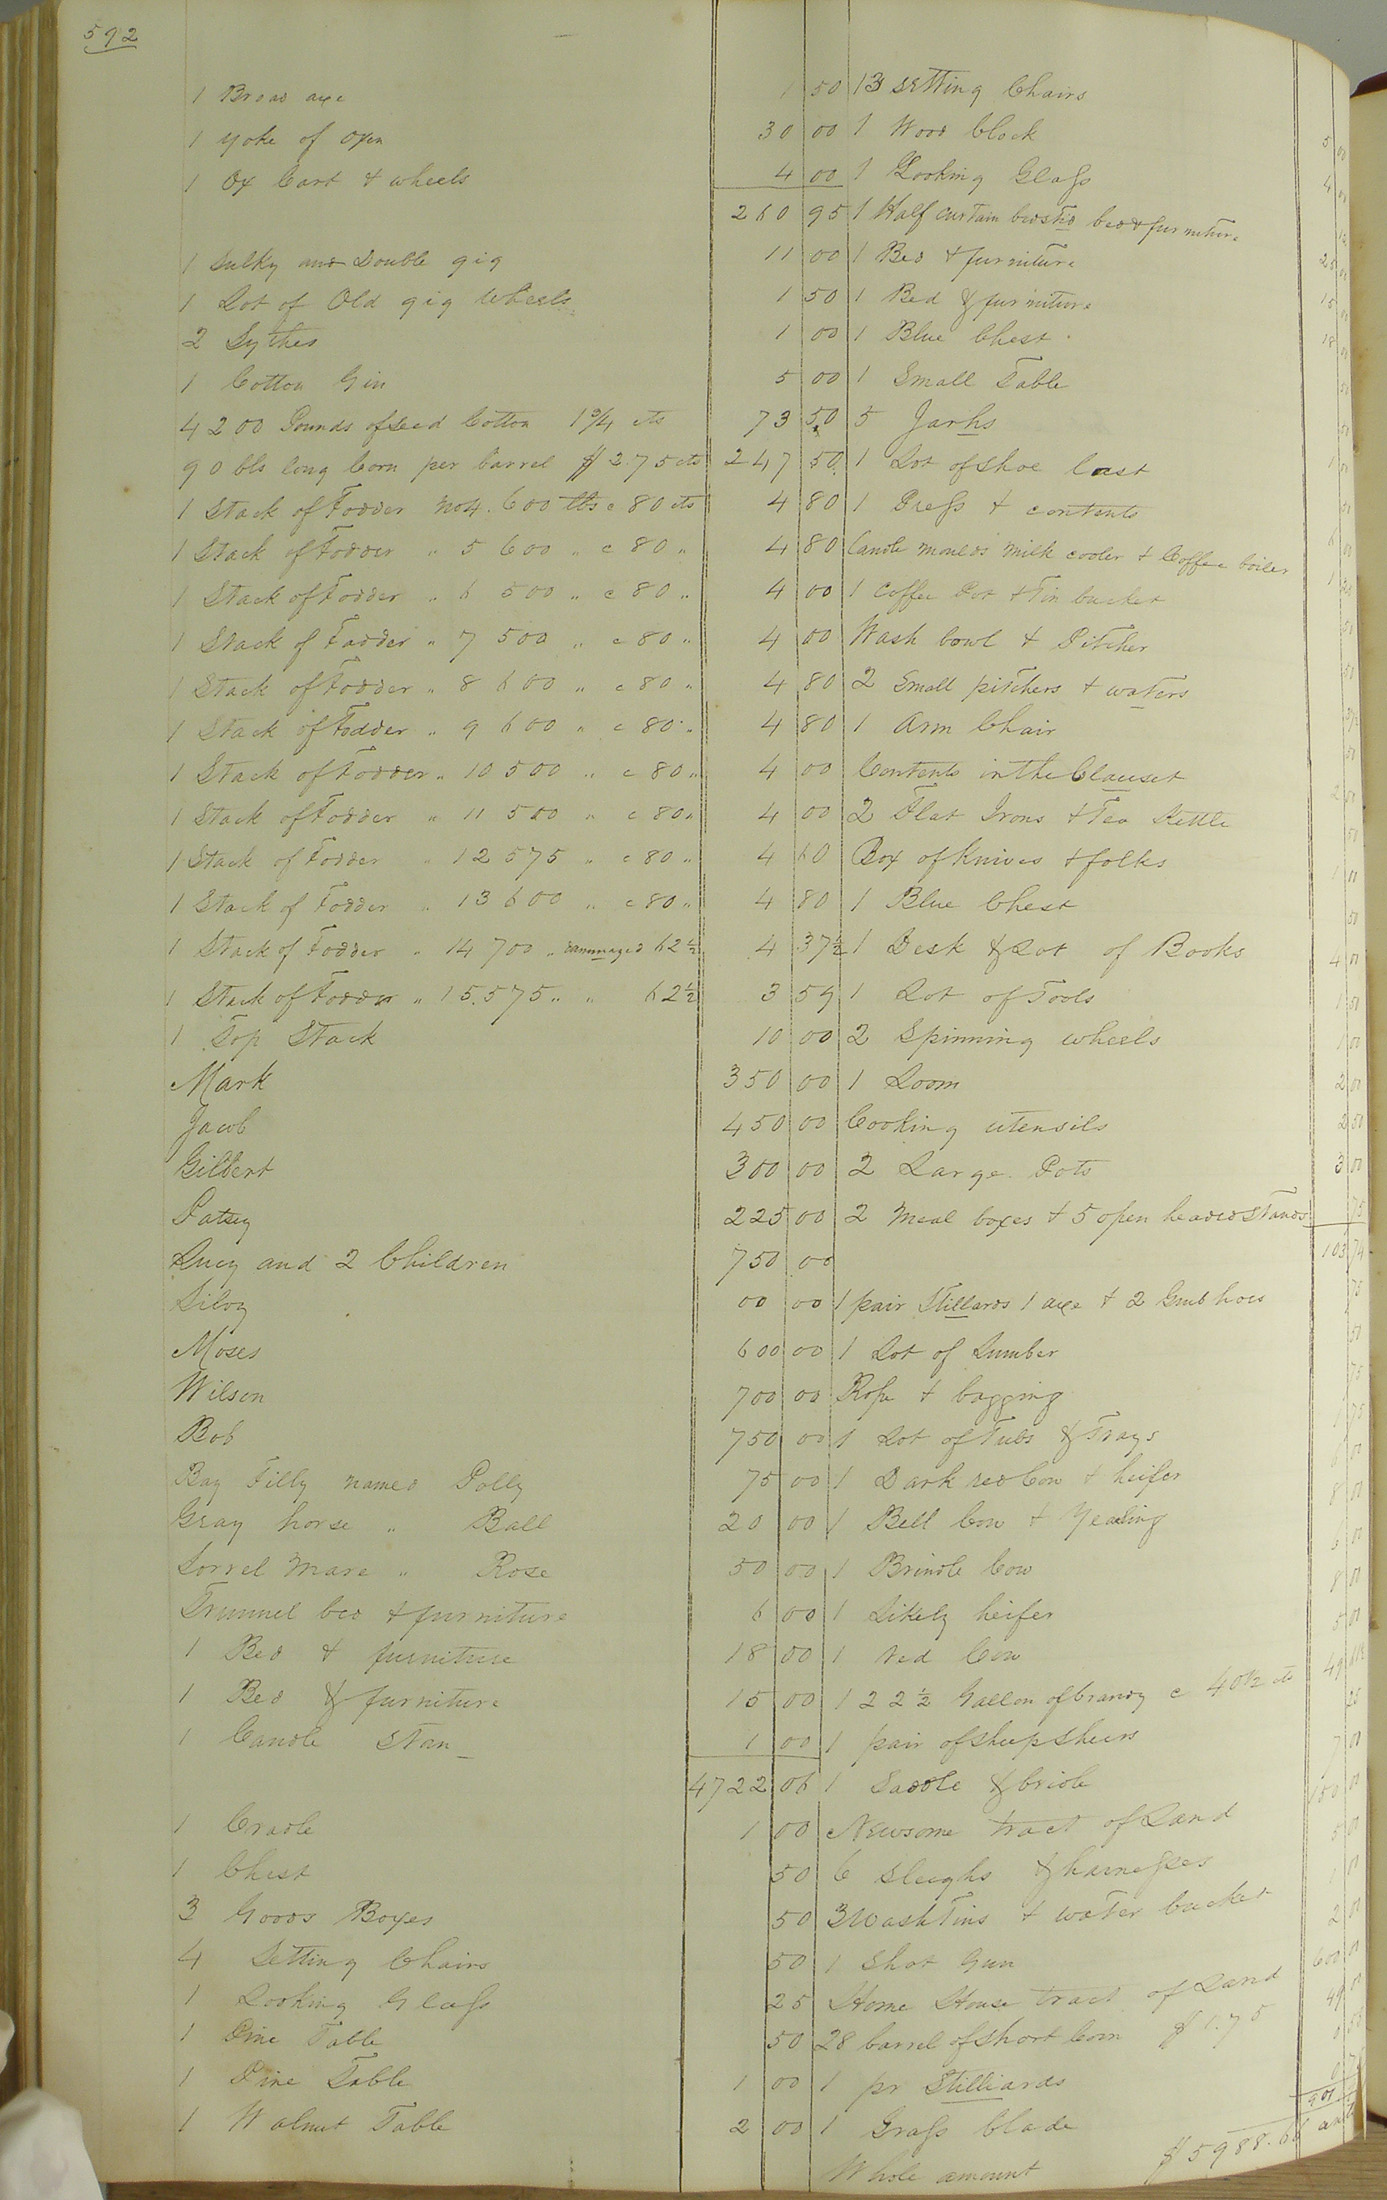 592
1 Broad axe 1 50
1 yoke of Oxen 30 00
1 Ox Cart & wheels 4 00
260 95
1 Sulky and Double gig 11 00
1 Lot of Old gig Wheels 1 50
2 Sythes 1 00
1 Cotton Gin 5 00
4200 Pounds of seed Cotton 1 3/4 cts 73 50
90 bls long Corn per barrel $2.75 cts 247 50
1 Stack of Fodder No 4. 600 lbs c 80 cts 4 80
1 Stack of Fodder " 5 600 " c 80 " 4 80
1 Stack of Fodder " 6 500 " c 80 " 4 00
1 Stack of Fodder " 7 500 " c 80 " 4 00
1 Stack of Fodder " 8 600 " c 80 " 4 80
1 Stack of Fodder " 9 600 " c 80 " 4 80
1 Stack of Fodder " 10 500 " c 80 " 4 00
1 Stack of Fodder " 11 500 " c 80 " 4 00
1 Stack of Fodder " 12 575 " c 80 " 4 60
1 Stack of Fodder " 13 600 " c 80 " 4 80
1 Stack of Fodder " 14 700 " dammaged 62 1/2 4 37 1/2
1 Stack of Fodder " 15. 575 " " 62 1/2 3 59
1 Top Stack 10 00
Mark 350 00
Jacob 450 00
Gilbert 300 00
Patsey 225 00
Lucy and 2 Children 750 00
Silvy 00 00
Moses 600 00
Wilson 700 00
Bob 750 00
Bay Filly named Polly 75 00
Gray horse " Ball 20 00
Sorrel Mare " Rose 50 00
Trunnel bed & furniture 6 00
1 Bed & furniture 18 00
1 Bed & furniture 15 00
1 Candle Stan 1 00
4722 06
1 Cradle 1 00
1 Chest 50
3 Goods Boxes 50
4 Setting Chairs 50
1 Looking Glass 25
1 Pine Table 50
1 Pine Table 1 00
1 Walnut Table 2 00
13 setting Chairs
1 Wood Clock 5 00
1 Looking Glass 4
1 Half curtain bedsted bed & furniture
1 Bed & furniture
1 Bed & furniture 15
1 Blue Chest 18
1 Small Table
5 Jarhs
1 Lot of shoe last
1 Press & contents
Candle moulds milk cooler & Coffee boiler
1 Coffee Pot & Tin bucket
Wash bowl & Pitcher
2 Small pitchers & waters
1 Arm Chair
Contents in the Clauset
2 Flat Irons & Tea Kettle
Box of Knives & folks
1 Blue Chest 50
1 Desk & Lot of Books 4 00
1 Lot of Tools 1 50
2 Spinning wheels 1 00
1 Loom 2 00
Cooking utensils 2 50
2 Large Pots 3 00
2 Meal boxes & 5 open headed Stands 75
103 74
1 pair Stillards 1 axe & 2 Grub hoes 75
1 Lot of Lumber 50
Rope & bagging 75
1 Lot of Tubs & Trays 1 75
1 Dark red Cow & heifer 6 00
1 Bell Cow & Yearling 8 00
1 Brindle Cow 00
1 Likely heifer 8 00
1 red Cow 5 00
122 1/2 Gallon of brandy c 40 1/2 cts 49
1 pair of sheep Shears 25
1 Saddle & bridle 7 00
Newsome tract of Land 150 00
6 Sleighs & harnesses 5 00
3 Wash Tins & water bucket 1 00
1 Shot Gun 2 00
Home House tract of Land 600 00
28 barrel of short Corn $1.75 49 00
1 pr Stilliards 50
1 Grass blade
Whole amount $5988.66